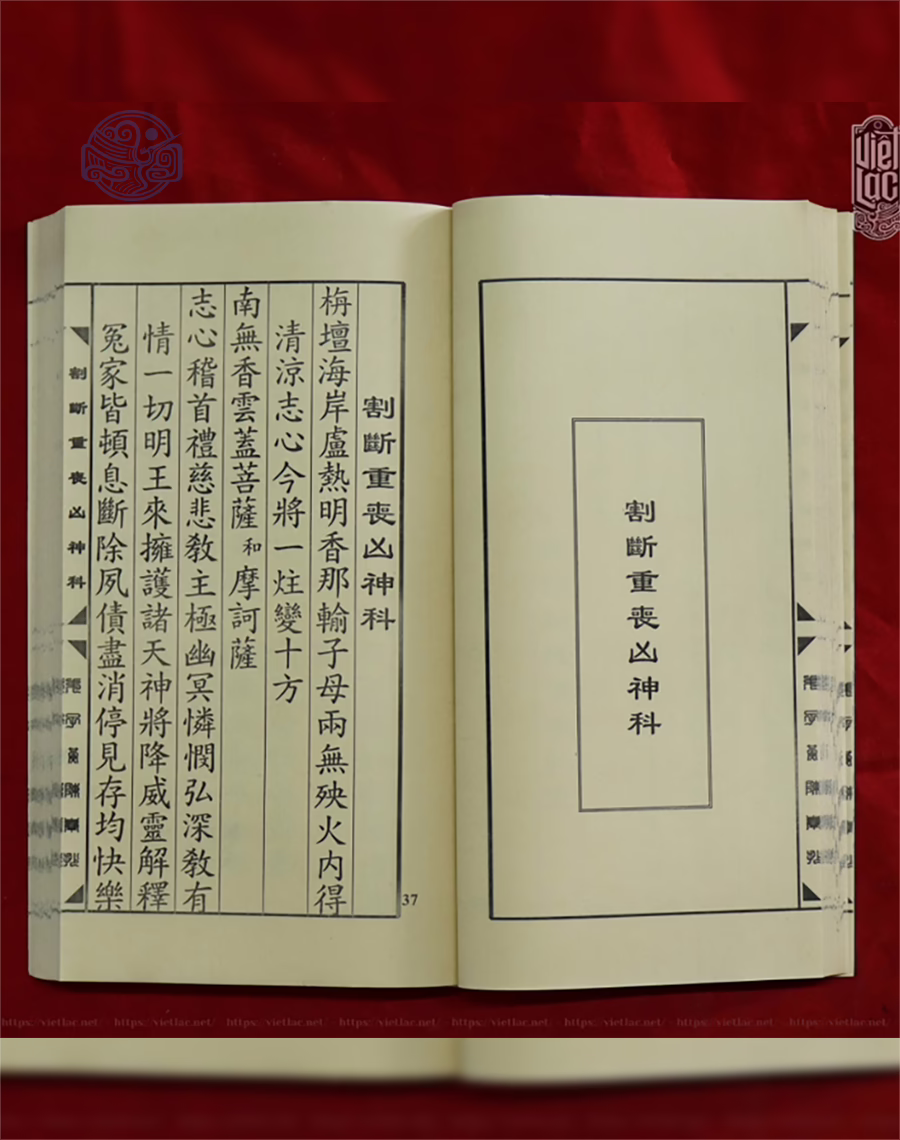 割斷重喪凶神科
割斷重喪凶神科
栴壇海岸盧熱明香那輸子母兩無殃火內得
清涼志心今將一炷變十方
南無香雲蓋菩薩 和 摩訶薩
志心稽首禮慈悲教主極幽冥憐憫弘深教有
情一切明王來擁護諸天神將降威靈解釋
冤家皆頓息斷除夙債盡消停見存均快樂
割斷重喪凶神科
37
Việt
Lạc
https://vietlac.net/ - https://vietlac.net/ - https://vietlac.net/ - https://vietlac.net/ - https://vietlac.net/ - https://vietlac.net/ - https://vietlac.net/ - https://vietlac.net/